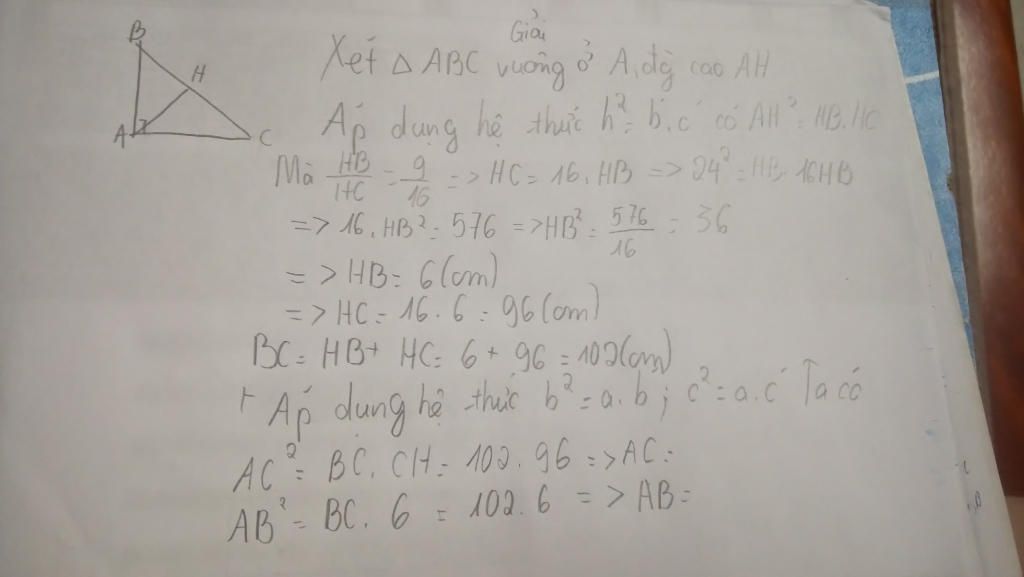 Giải
B
H
A
C
Xét △ ABC vuông ở A, đg cao AH
Áp dụng hệ thức h² = b'.c' có AH² = HB.HC
Mà HB/HC = 9/16 => HC = 16.HB => 24² = HB.16HB
=> 16.HB² = 576 => HB² = 576/16 = 36
=> HB = 6(cm)
=> HC = 16.6 = 96(cm)
BC = HB + HC = 6 + 96 = 102(cm)
+ Áp dụng hệ thức b² = a.b; c² = a.c' Ta có
AC² = BC.CH = 102.96 => AC =
AB² = BC.6 = 102.6 => AB =